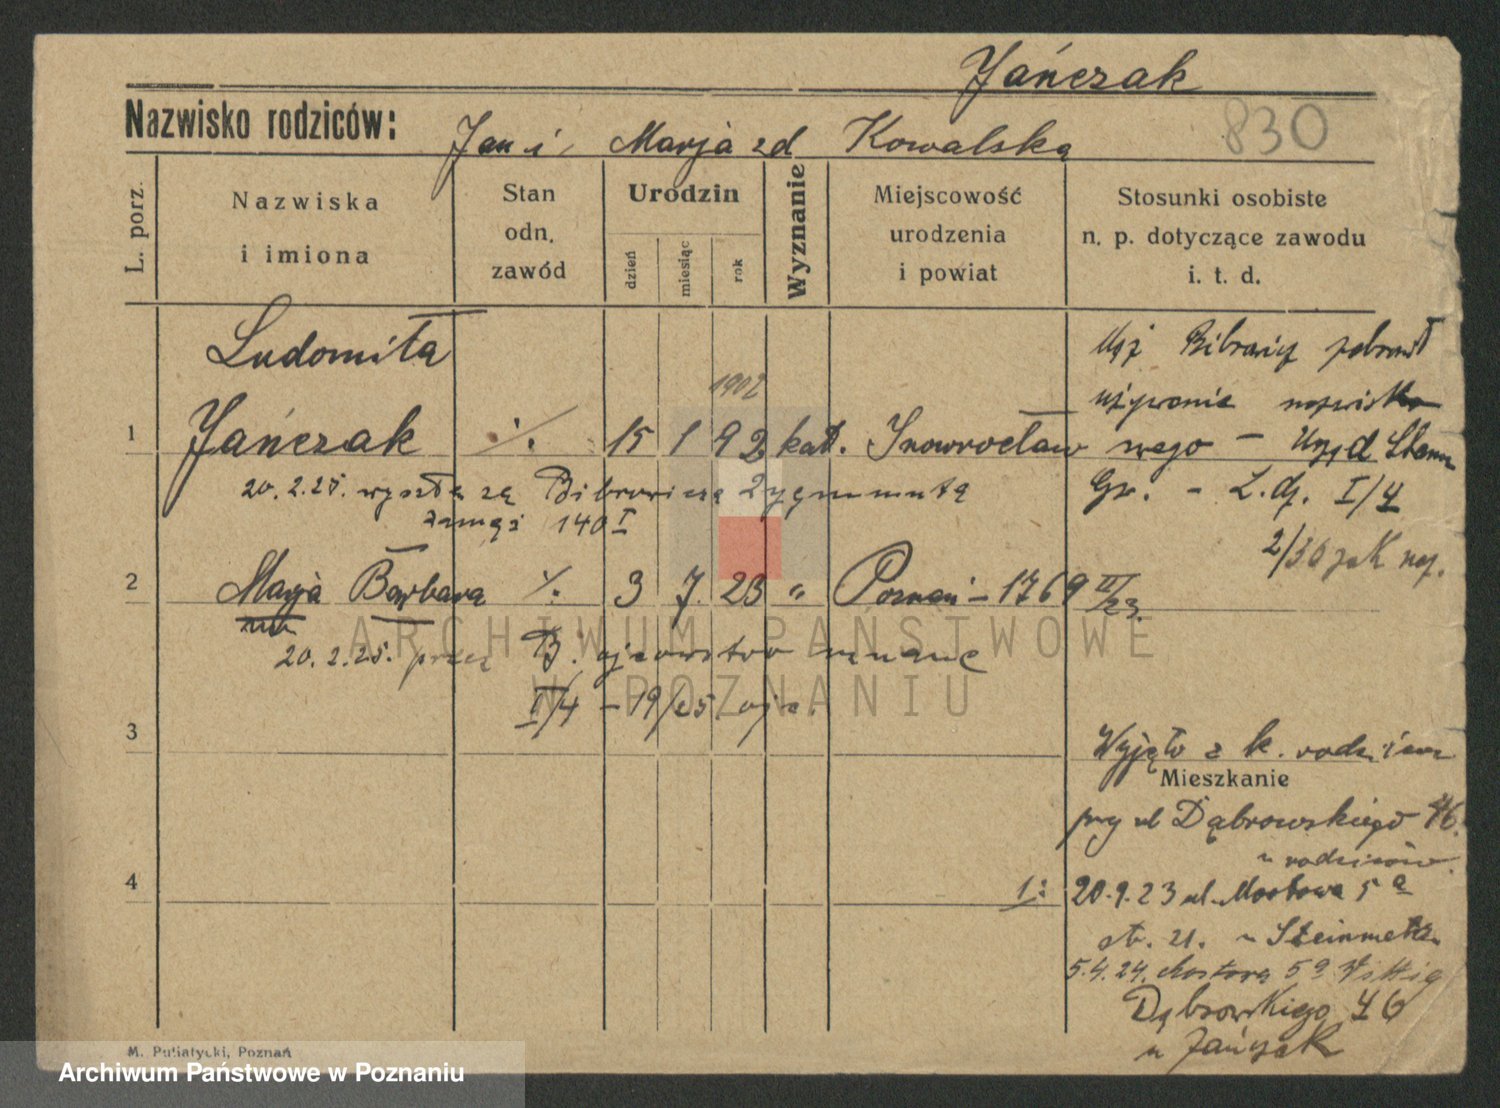 Jańczak
Nazwisko rodziców: Jan i Marja zd Kowalska 830
L. porz.
Nazwiska
i imiona
Stan
odn.
zawód
Urodzin
dzień
miesiąc
rok
Wyznanie
Miejscowość
urodzenia
i powiat
Stosunki osobiste
n. p. dotyczące zawodu
i. t. d.
Ludomiła
1902
1 Jańczak ·/. 15 1 92 kat. Inowrocław
20.2.25. wyszła za Zygmunta
zamąż 140 I
2 Marja Barbara ·/. 3 7. 23 " Poznań - 1769 II/23.
20.2.25. przez B. ojcowstwo uznane
II/4 - 19/25
3
4
Mąż
używanie nazwiska
- Urząd Stanu
I/4
2/30
Wyjęto z k. rodziców
Mieszkanie
przy ul Dąbrowskiego 46.
u rodziców
1: 20.9.23 ul. Mostowa 5a
21. u Steinmetz
5.4.24. Mostowa 5a
Dąbrowskiego 46
u Jańczak
M. Putiatycki, Poznań
ARCHIWUM PAŃSTWOWE
W POZNANIU
Archiwum Państwowe w Poznaniu